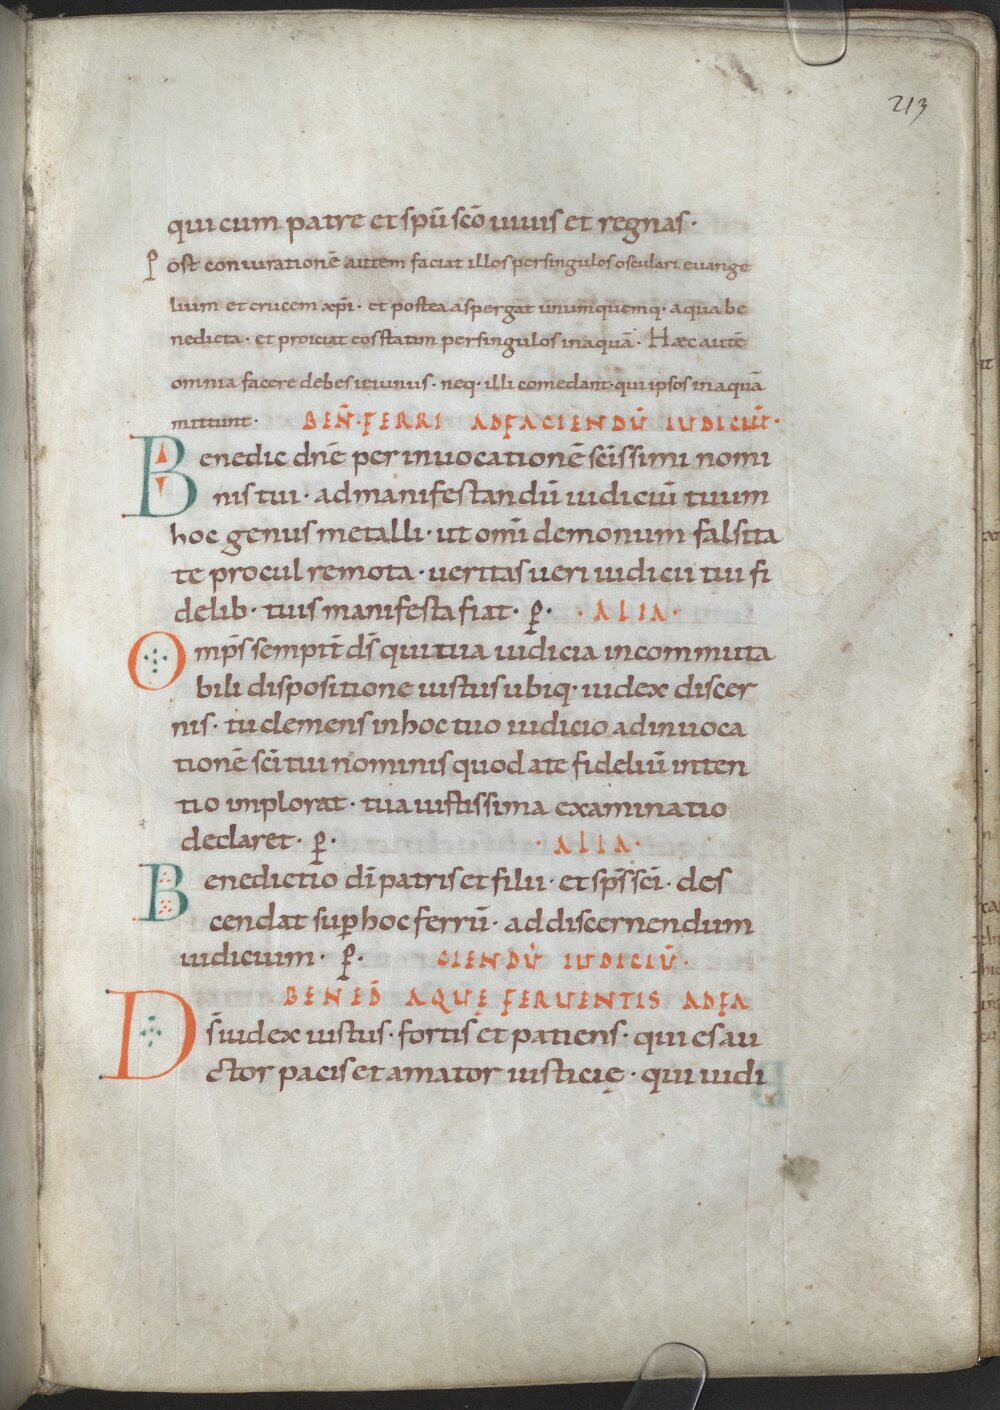 213
qui cum patre et spū scō uiuis et regnas·
Post coniurationē autem faciat illos per singulos osculari euange
lium et crucem xp̄i· et postea aspergat unumquemq· aqua be
nedicta· et proiciat eos statim per singulos in aquā· Hæc autē
omnia facere debes ieiunus· neq· illi comedant· qui ipsos in aquā
mittunt· BEN̄·FERRI AD FACIENDŪ IUDICIŪ·
Benedic dn̄e per inuocationē sc̄issimi nomi
nis tui· ad manifestandū iudiciū tuum
hoc genus metalli· ut om̄i demonum falsita
te procul remota· ueritas ueri iudicii tui fi
delib· tuis manifesta fiat· p̱· ·ALIA·
Omp̄s sempit̄ ds̄ qui tua iudicia incommuta
bili dispositione iustus ubiq· iudex discer
nis· tu clemens in hoc tuo iudicio ad inuoca
tionē sc̄i tui nominis quod a te fideliū inten
tio implorat· tua iustissima examinatio
declaret· p̱· ·ALIA·
Benedictio dī patris et filii· et sps̄ sc̄i· des
cendat sup̱ hoc ferrū· ad discernendum
iudicium· p̱· CIENDŪ IUDICIŪ·
BENED̄ AQUĘ FERUENTIS AD FA
Ds̄ iudex iustus· fortis et patiens· qui es au
ctor pacis et amator iusticię· qui iudi